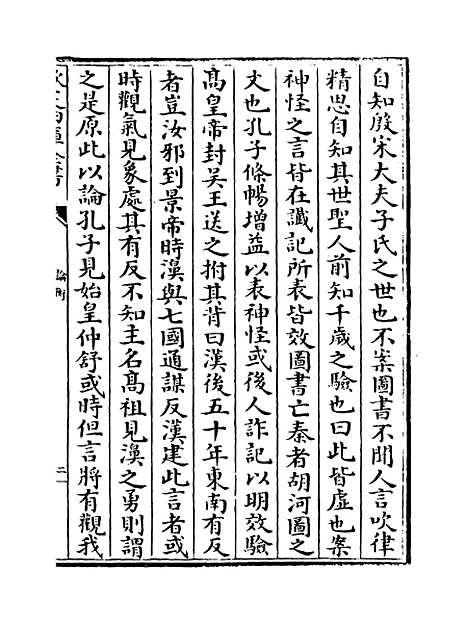 自知殷宋大夫子氏之世也不案圖書不聞人言吹律
精思自知其世聖人前知千歲之驗也曰此皆虛也案
神怪之言皆在讖記所表皆效圖書亡秦者胡河圖之
文也孔子條暢增益以表神怪或後人詐記以明效驗
髙皇帝封吴王送之拊其背曰漢後五十年東南有反
者豈汝邪到景帝時濞與七國通謀反漢建此言者或
時觀氣見象處其有反不知主名髙祖見濞之勇則謂
之是原此以論孔子見始皇仲舒或時但言將有觀我
論衡
二